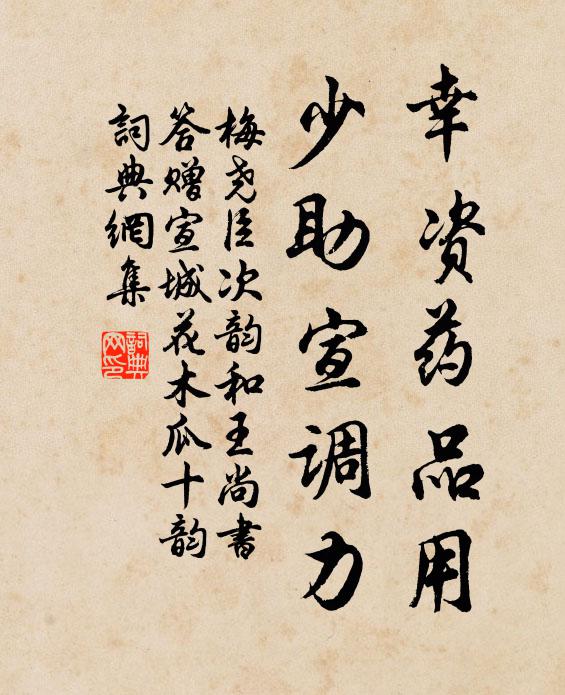 幸资药品用
少助宣调力
梅尧臣次韵和王尚書
答赠宣城花木瓜十韵
詞典網集
詞典网印